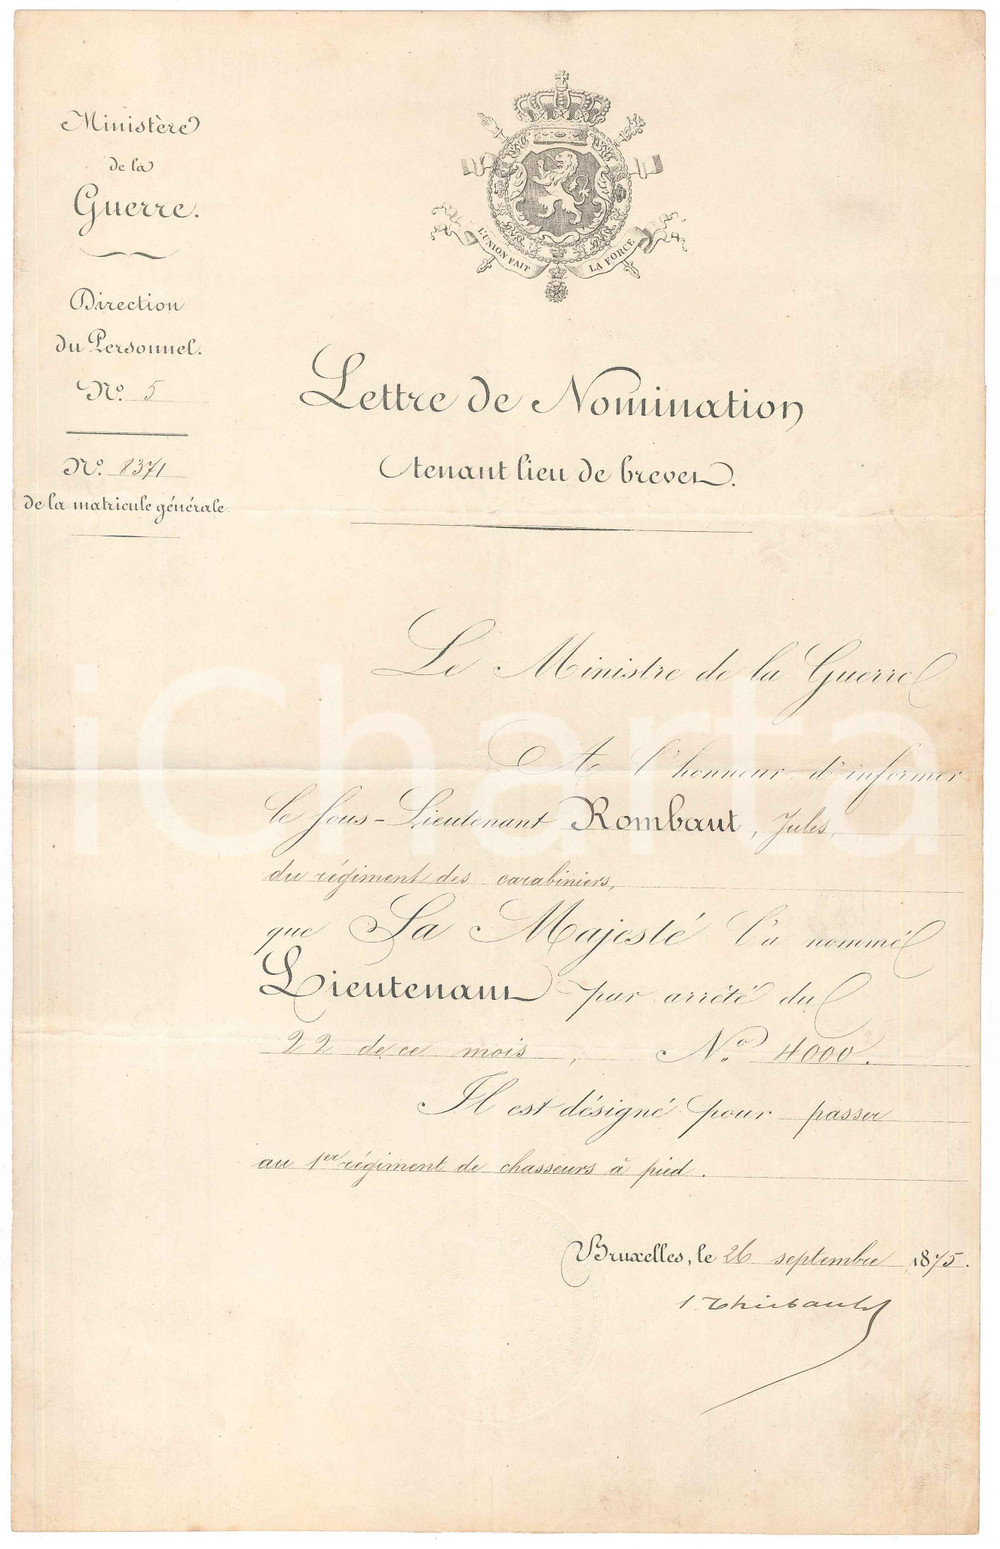 Ministère
de la
Guerre.
Direction
du Personnel.
N.º 5
N.º 8371
de la matricule générale.
L'UNION FAIT LA FORCE
Lettre de Nomination
tenant lieu de brevet.
Le Ministre de la Guerre
A l'honneur d'informer
le Sous-Lieutenant Rombaut, Jules,
du régiment des carabiniers,
que Sa Majesté l'a nommé
Lieutenant par arrêté du
22 de ce mois, N.º 4000.
Il est désigné pour passer
au 1er régiment de chasseurs à pied.
Bruxelles, le 26 septembre 1875.
Thiebauld
iCharta